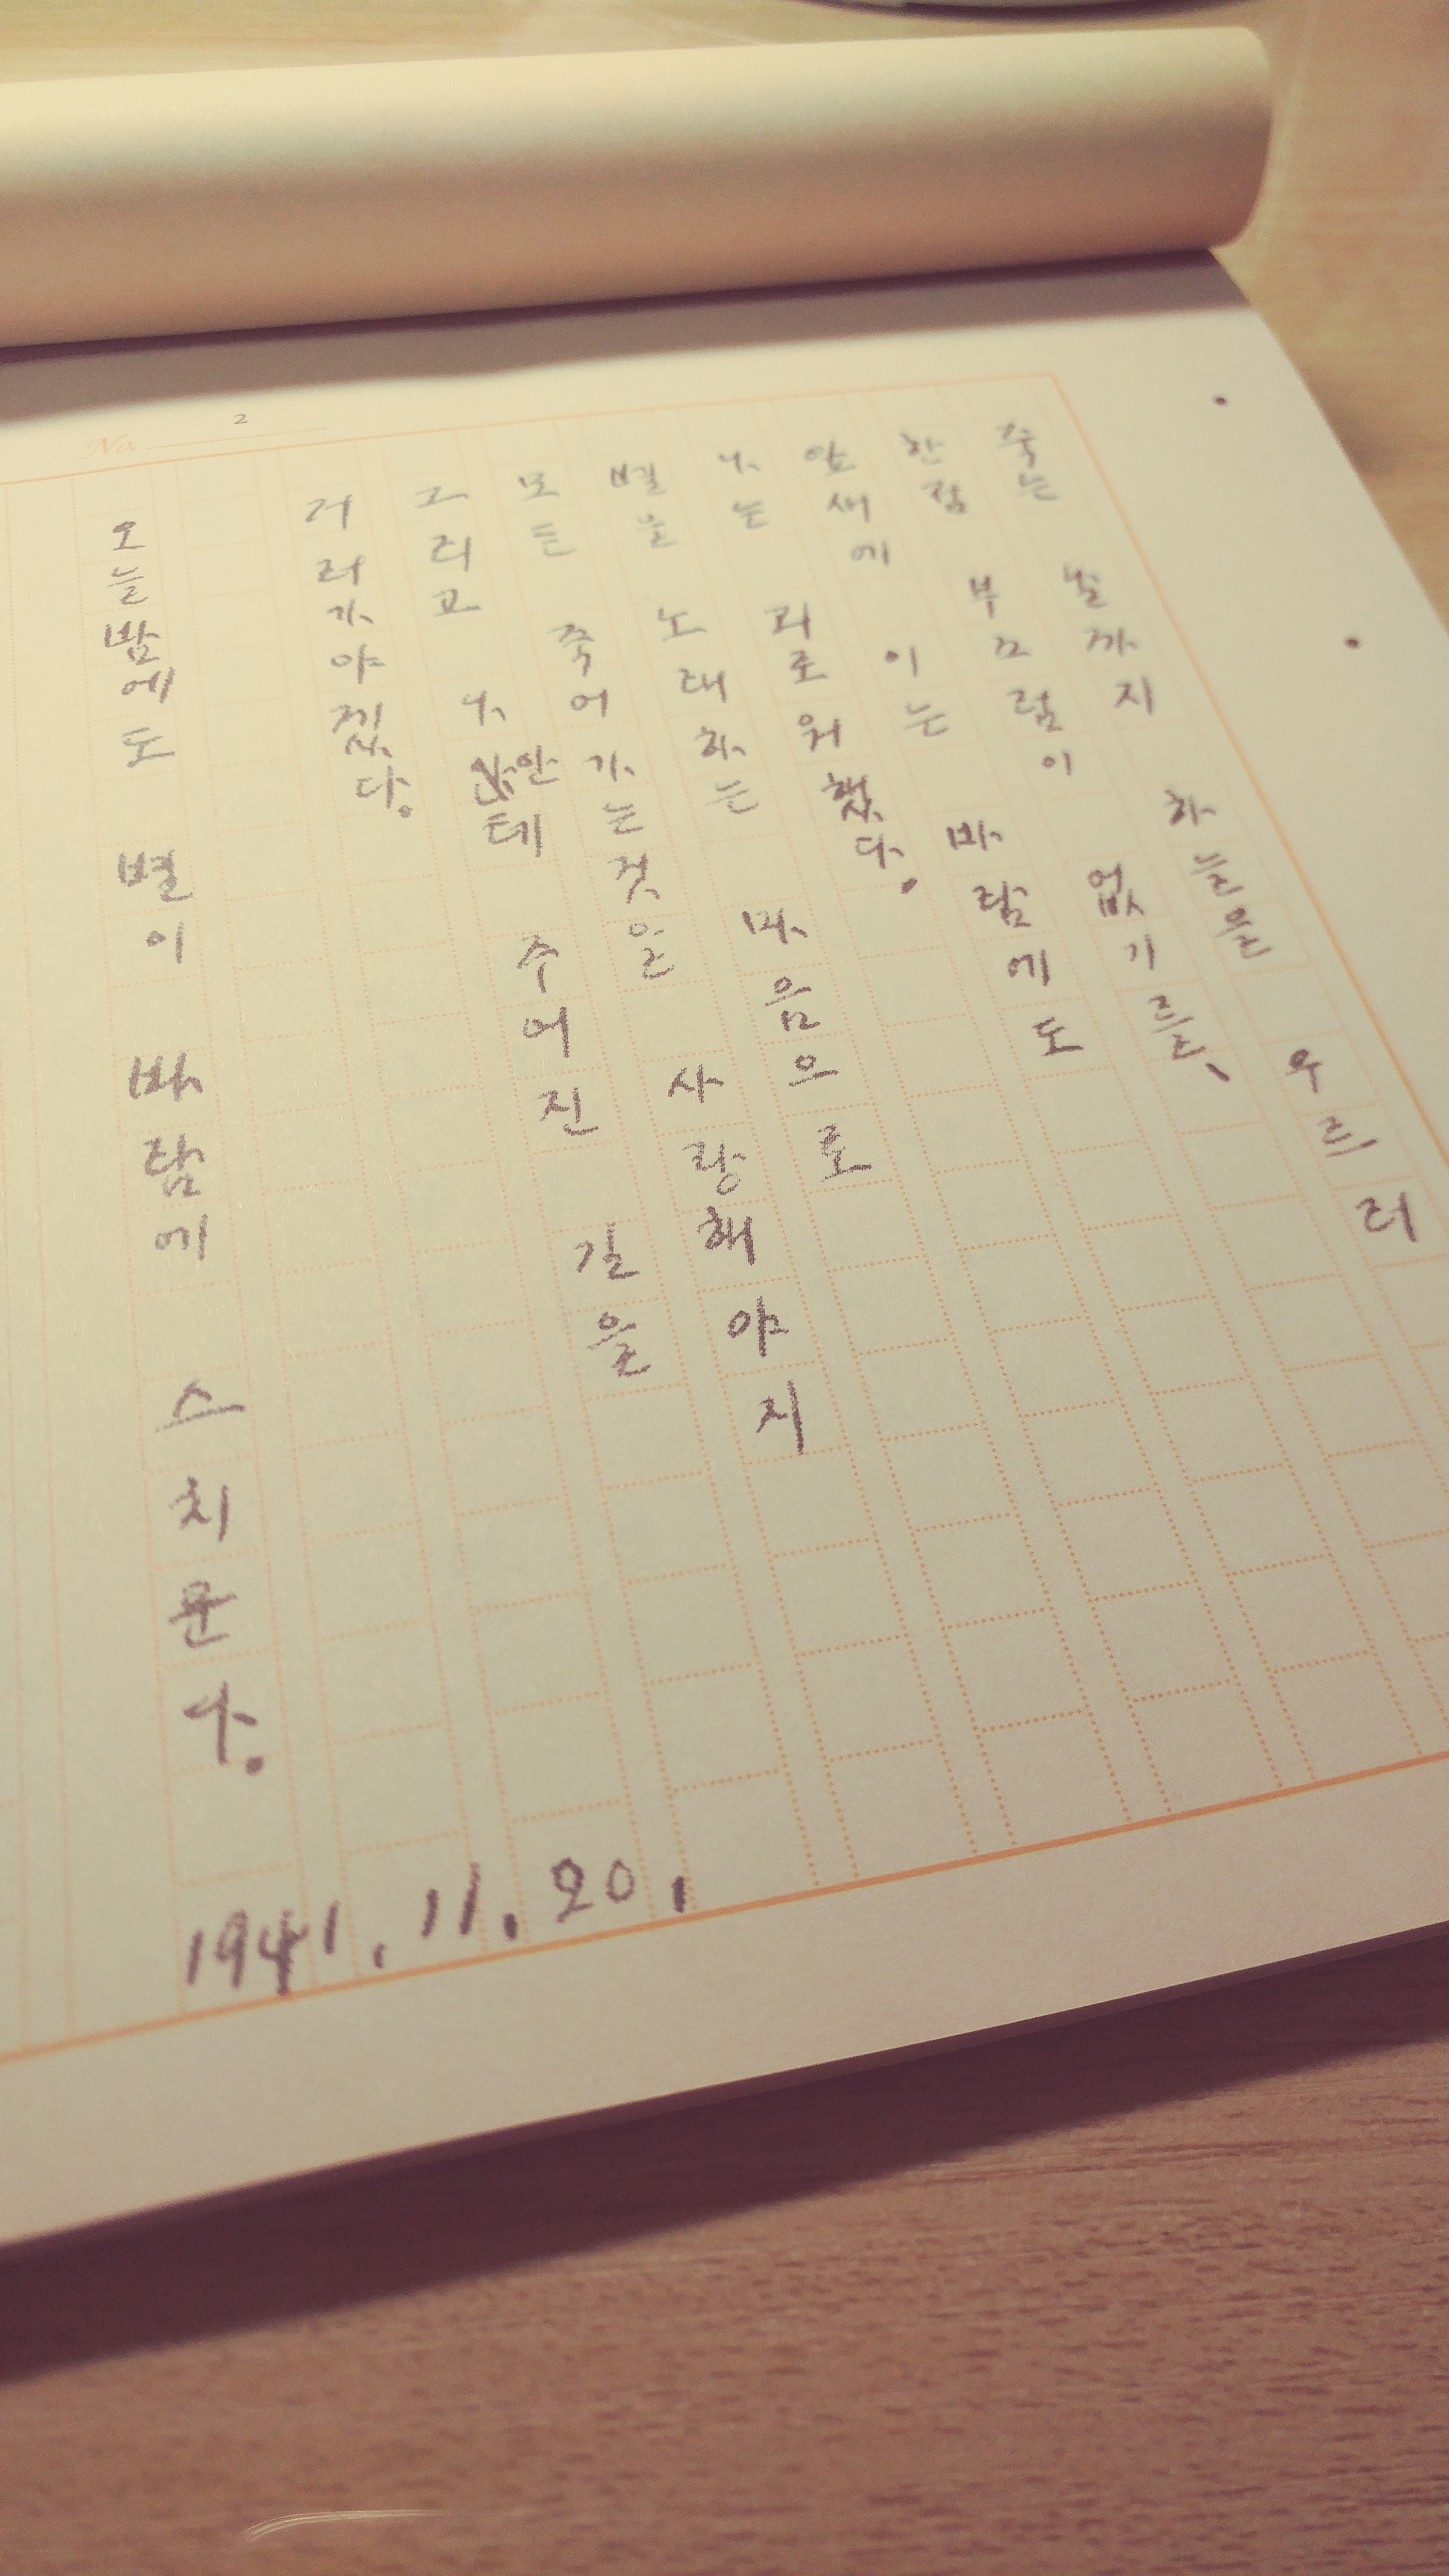 No. 2
죽는 날까지 하늘을 우르러
한점 부끄럼이 없기를、
잎새에 이는 바람에도
나는 괴로워했다.
별을 노래하는 마음으로
모든 죽어가는것을 사랑해야지
그리고 나안테 주어진 길을
거러가야겠다.
오늘밤에도 별이 바람에 스치운다.
1941.11.20.